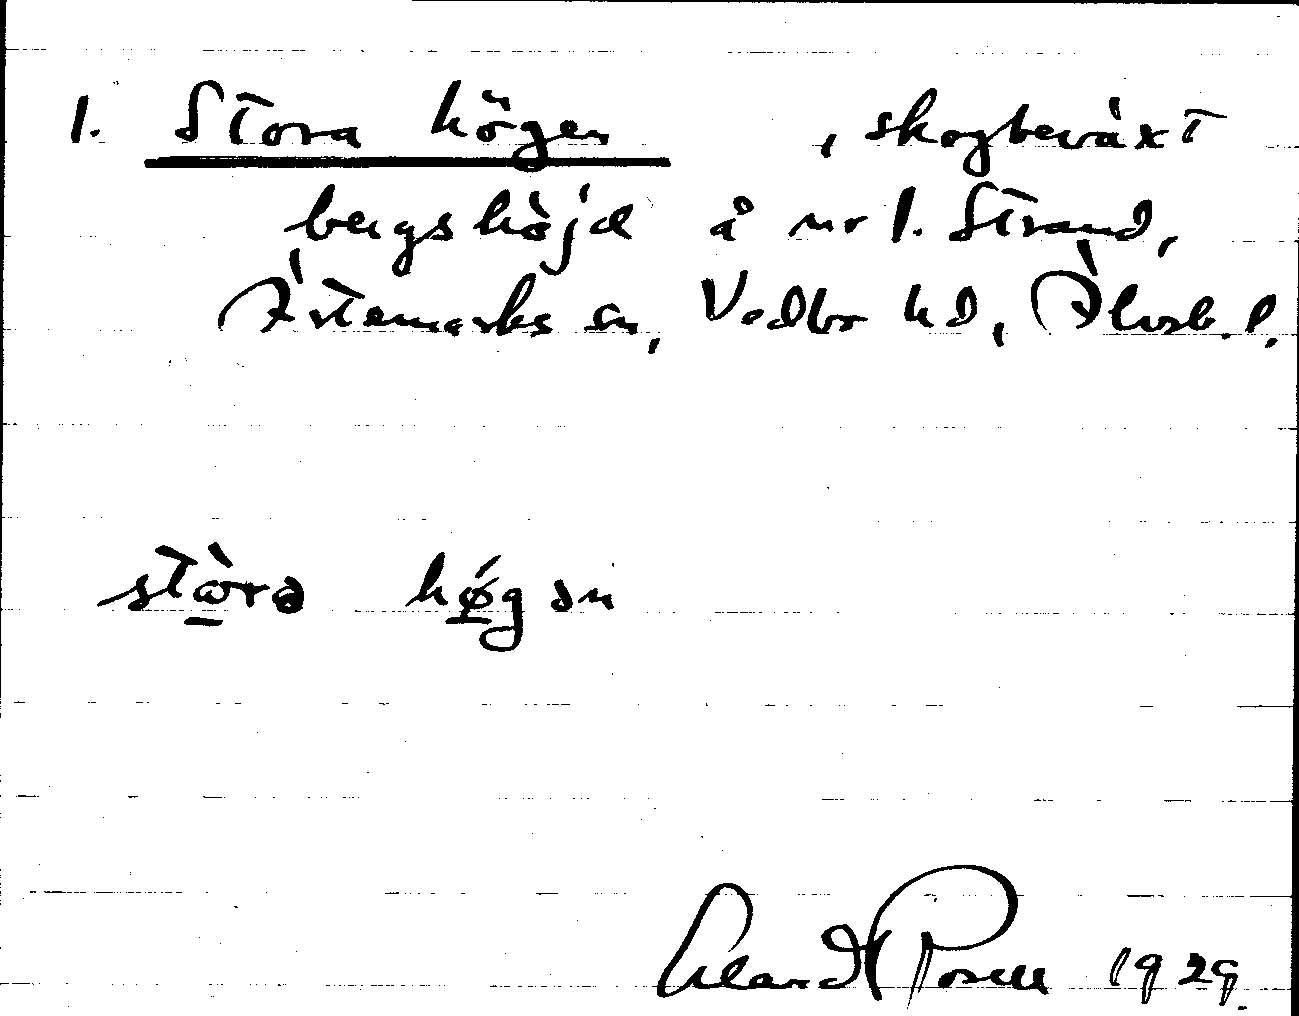 1. Stora högen , skogbeväxt
bergshöjd å nr 1. Strand,
Ärtemarks sn, Vedbo hd, Älvsb. l.
stòrə hǿgən
Erland Rosell 1929.